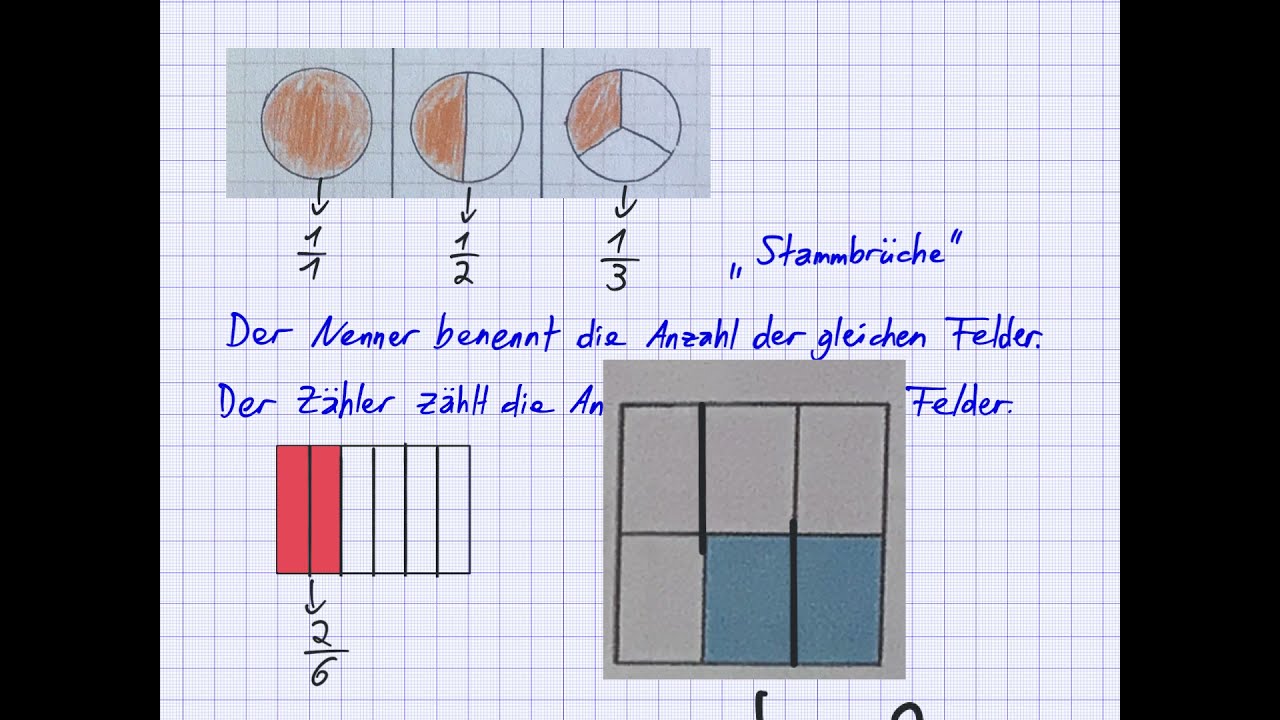 1/1 1/2 1/3
„Stammbrüche“
Der Nenner benennt die Anzahl der gleichen Felder.
Der Zähler zählt die An Felder.
2/6